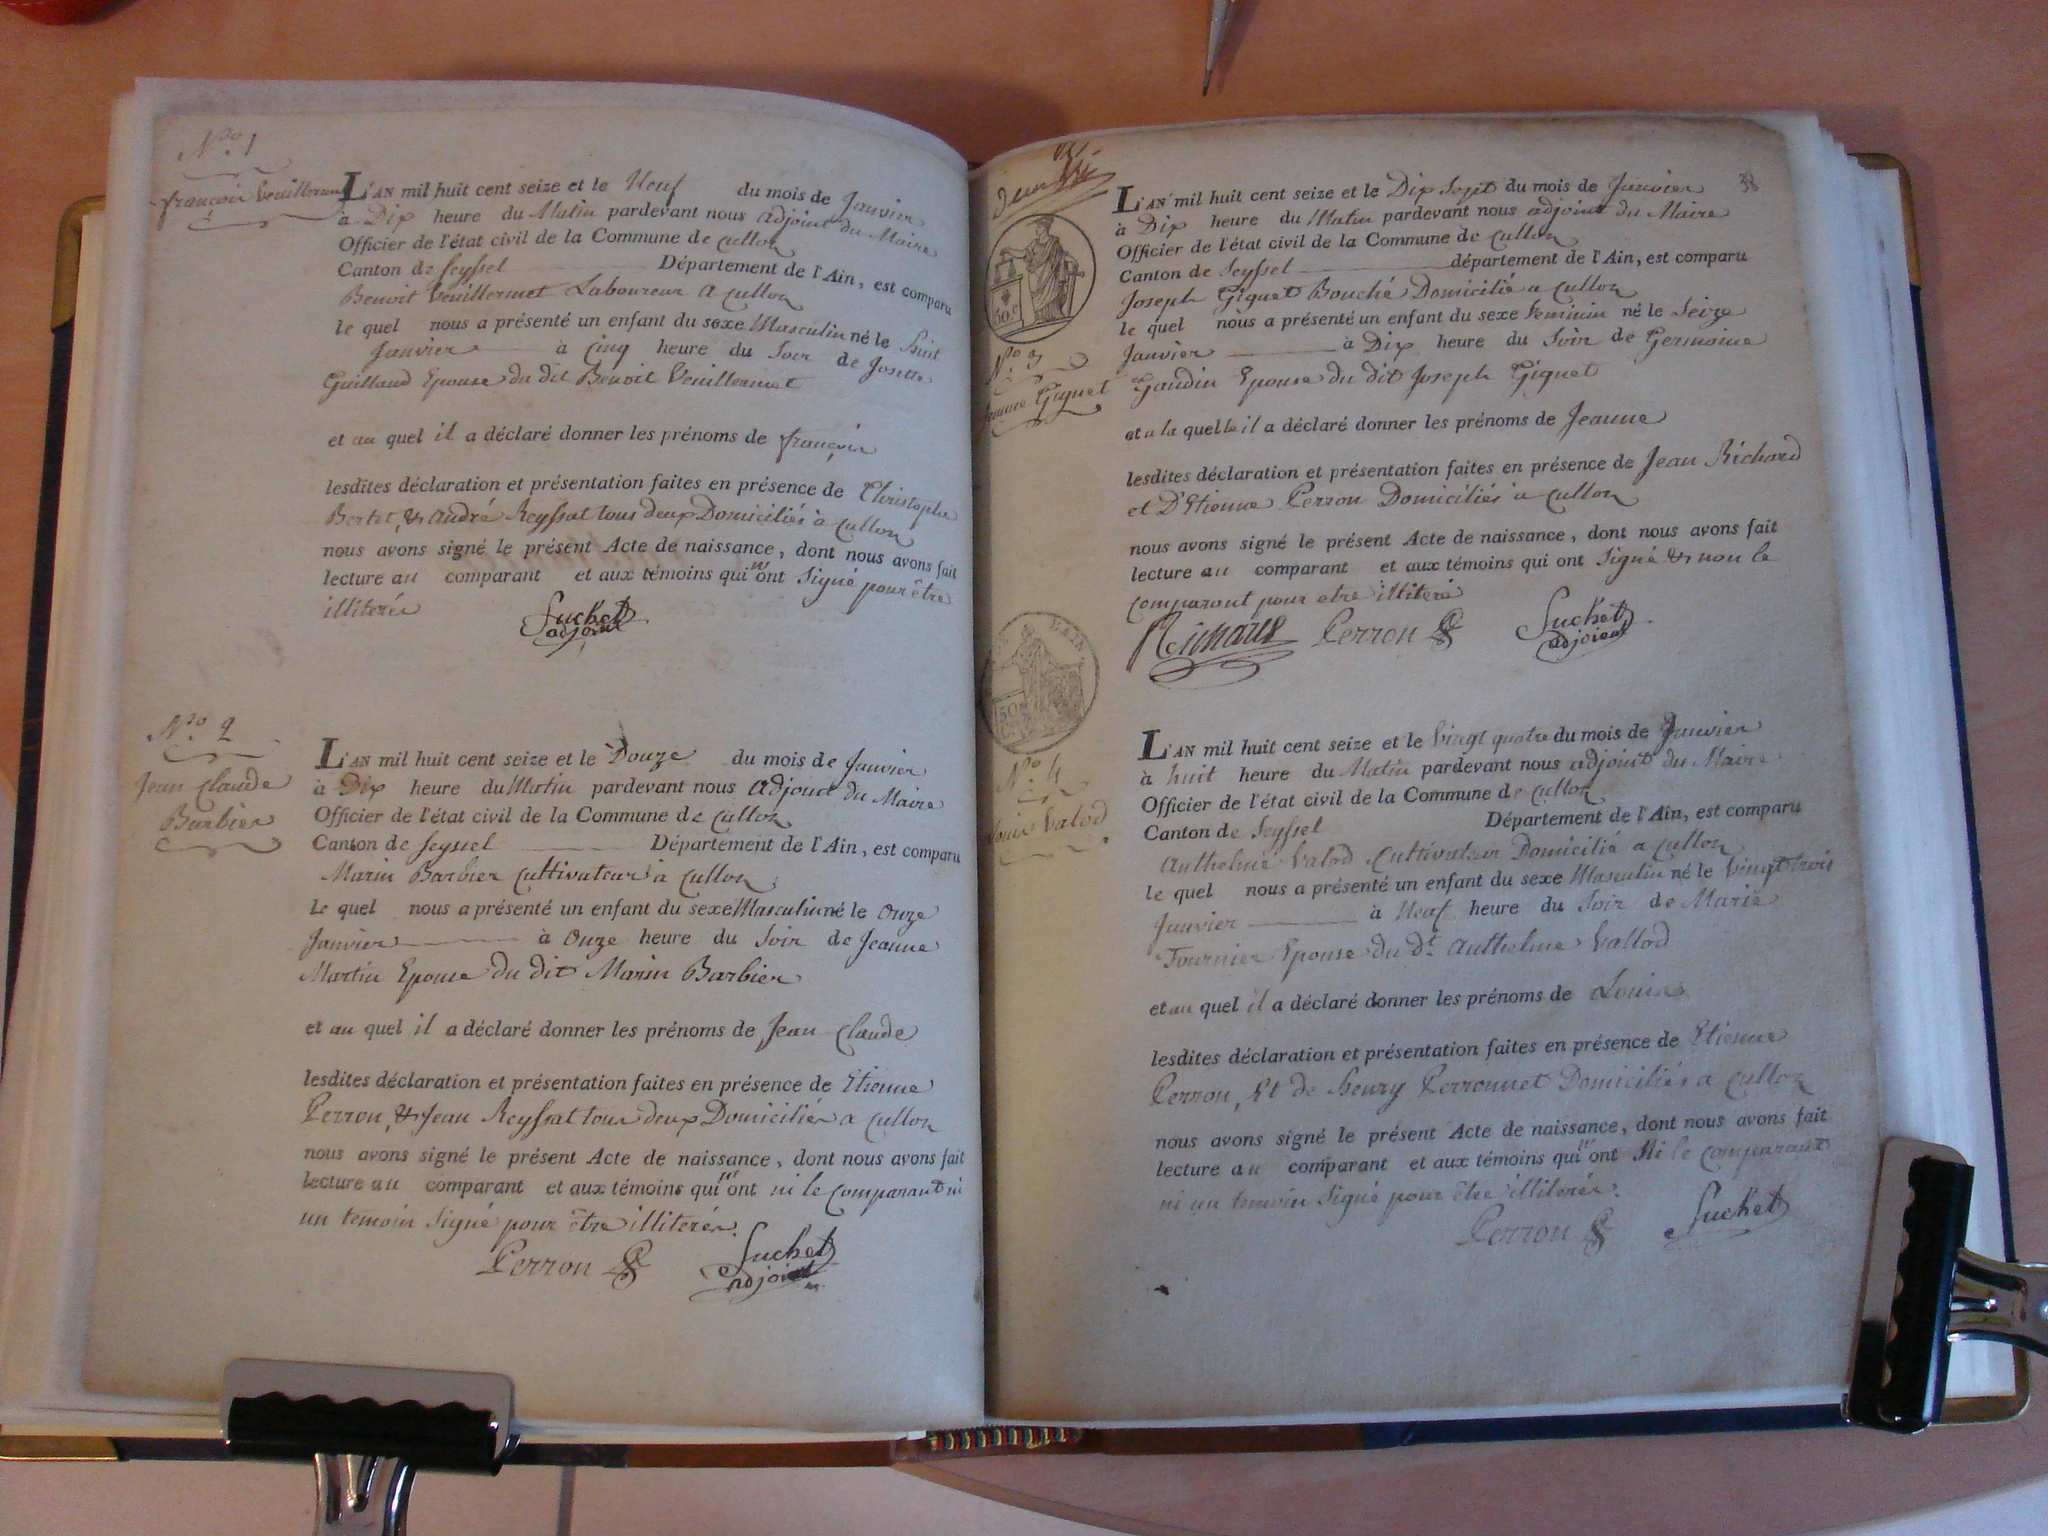 N.ro 1
françois Veuillermet
L'AN mil huit cent seize et le Neuf du mois de Janvier
à Dix heure du Matin pardevant nous adjoint du Maire
Officier de l'état civil de la Commune de Culloz
Canton de Seyssel Département de l'Ain, est comparu
Benoit Veuillermet Laboureur a Culloz
le quel nous a présenté un enfant du sexe Masculin né le huit
Janvier à Cinq heure du Soir de Josette
Guilland Epouse du dit Benoit Veuillermet
et au quel il a déclaré donner les prénoms de françois
lesdites déclaration et présentation faites en présence de Christophe
Bertet, & andré Reyssat tous deux Domiciliés à Culloz
nous avons signé le présent Acte de naissance, dont nous avons fait
lecture au comparant et aux témoins qui n'ont Signé pour être
illiterés
Suchet
adjoint
N.ro 2
Jean Claude
Barbier
L'AN mil huit cent seize et le Douze du mois de Janvier
à Dix heure du Matin pardevant nous adjoint du Maire
Officier de l'état civil de la Commune de Culloz
Canton de Seyssel Département de l'Ain, est comparu
Marin Barbier Cultivateur à Culloz
le quel nous a présenté un enfant du sexe Masculin né le Onze
Janvier à Onze heure du Soir de Jeanne
Martin Epouse du dit Marin Barbier
et au quel il a déclaré donner les prénoms de Jean Claude
lesdites déclaration et présentation faites en présence de Etienne
Perron, & Jean Reyssat tous deux Domiciliés a Culloz
nous avons signé le présent Acte de naissance, dont nous avons fait
lecture au comparant et aux témoins qui n'ont ni le Comparant ni
un temoin Signé pour être illiterés.
Perron
Suchet
adjoint
deux
L'AN mil huit cent seize et le Dix Sept du mois de Janvier
à Dix heure du Matin pardevant nous adjoint du Maire
Officier de l'état civil de la Commune de Culloz
Canton de Seyssel département de l'Ain, est comparu
Joseph Giguet Bouché Domicilié a Culloz
le quel nous a présenté un enfant du sexe Feminin né le Seize
Janvier à Dix heure du Soir de Germaine
Gaudin Epouse du dit Joseph Giguet
et a la quelle il a déclaré donner les prénoms de Jeanne
lesdites déclaration et présentation faites en présence de Jean Richard
et D'Etienne Perron Domiciliés a Culloz
nous avons signé le présent Acte de naissance, dont nous avons fait
lecture au comparant et aux témoins qui ont Signé & non le
Comparant pour etre illiteré
Richard Perron Suchet
adjoint
50.c
N.ro 3
Jeanne Giguet
L'AN mil huit cent seize et le Vingt quatre du mois de Janvier
à huit heure du Matin pardevant nous adjoint du Maire
Officier de l'état civil de la Commune de Culloz
Canton de Seyssel Département de l'Ain, est comparu
Anthelme Valod Cultivateur Domicilié a Culloz
le quel nous a présenté un enfant du sexe Masculin né le Vingt trois
Janvier à Neuf heure du Soir de Marie
Fournier Epouse du d.t Anthelme Vallod
et au quel il a déclaré donner les prénoms de Louis
lesdites déclaration et présentation faites en présence de Etienne
Perron, Et de henry Perronnet Domiciliés a Culloz
nous avons signé le présent Acte de naissance, dont nous avons fait
lecture au comparant et aux témoins qui n'ont Ni le Comparant
ni un temoin Signé pour être illiterés.
Perron
Suchet
AIN.
50
N.ro 4
Louis Valod